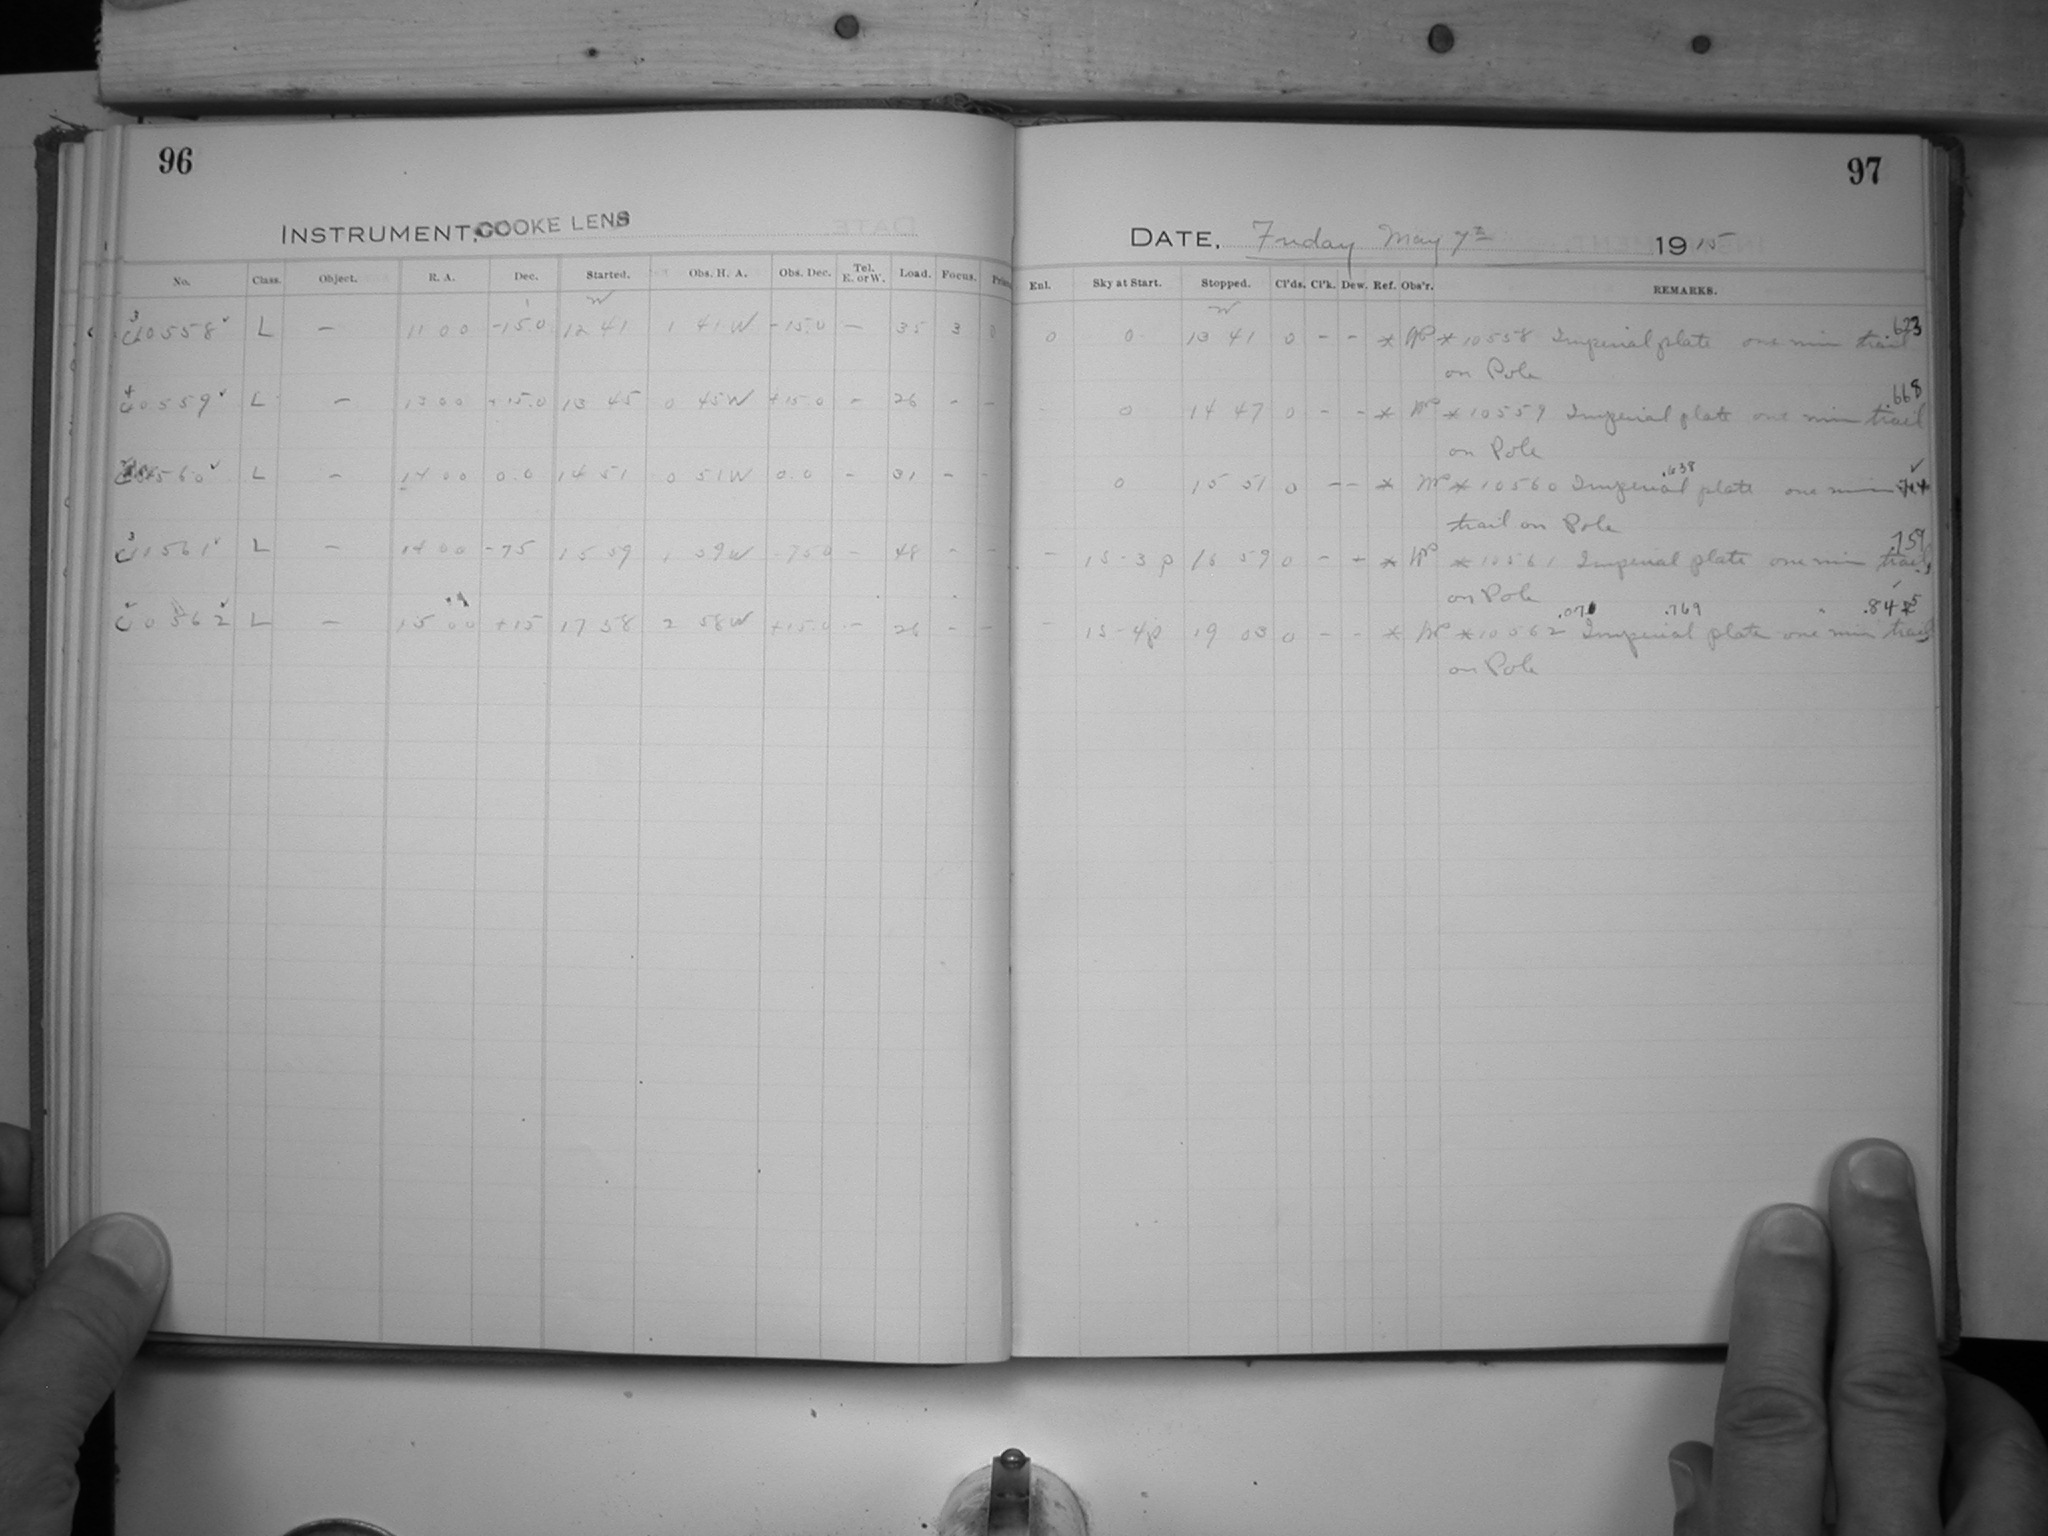 96
97
INSTRUMENT, COOKE LENS
DATE, Friday May 7th 1915
No. Class. Object. R. A. Dec. Started. Obs. H. A. Obs. Dec. Tel. E. or W. Load. Focus.
Enl. Sky at Start. Stopped. Cl'ds. Cl'k. Dew. Ref. Obs'r. REMARKS.
10558 L - 11 00 -15.0 12 41 1 41 W -15.0 - 35 3 0
0 0 13 41 0 - - * * 10558 Imperial plate one min trail .623
on Pole
10559 L - 13 00 +15.0 13 45 0 45 W +15.0 - 26 - -
- 0 14 47 0 - - * * 10559 Imperial plate one min trail .668
on Pole
10560 L - 14 00 0.0 14 51 0 51 W 0.0 - 31 - -
0 15 51 0 - - * * 10560 Imperial plate one min .638
trail on Pole
10561 L - 14 00 -75 15 59 1 59 W -75.0 - 48 - -
- 15-3 p 16 59 0 - - * * 10561 Imperial plate one min trail .759
on Pole
10562 L - 15 00 +15 17 58 2 58 W +15.0 - 26 - -
- 15-4p 19 03 0 - - * * 10562 Imperial plate one min trail .769
on Pole